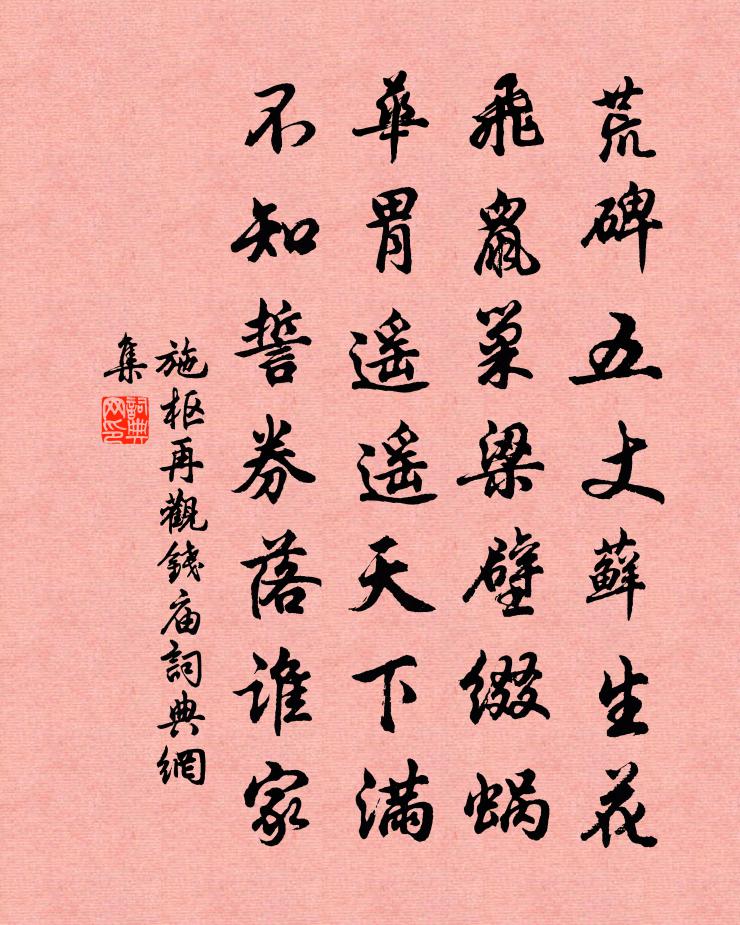 荒碑五丈蘚生花
飛鼠巢梁壁缀蜗
華胃遥遥天下满
不知誓券落谁家
施枢再觀錢庙詞典網
集
詞典
网印